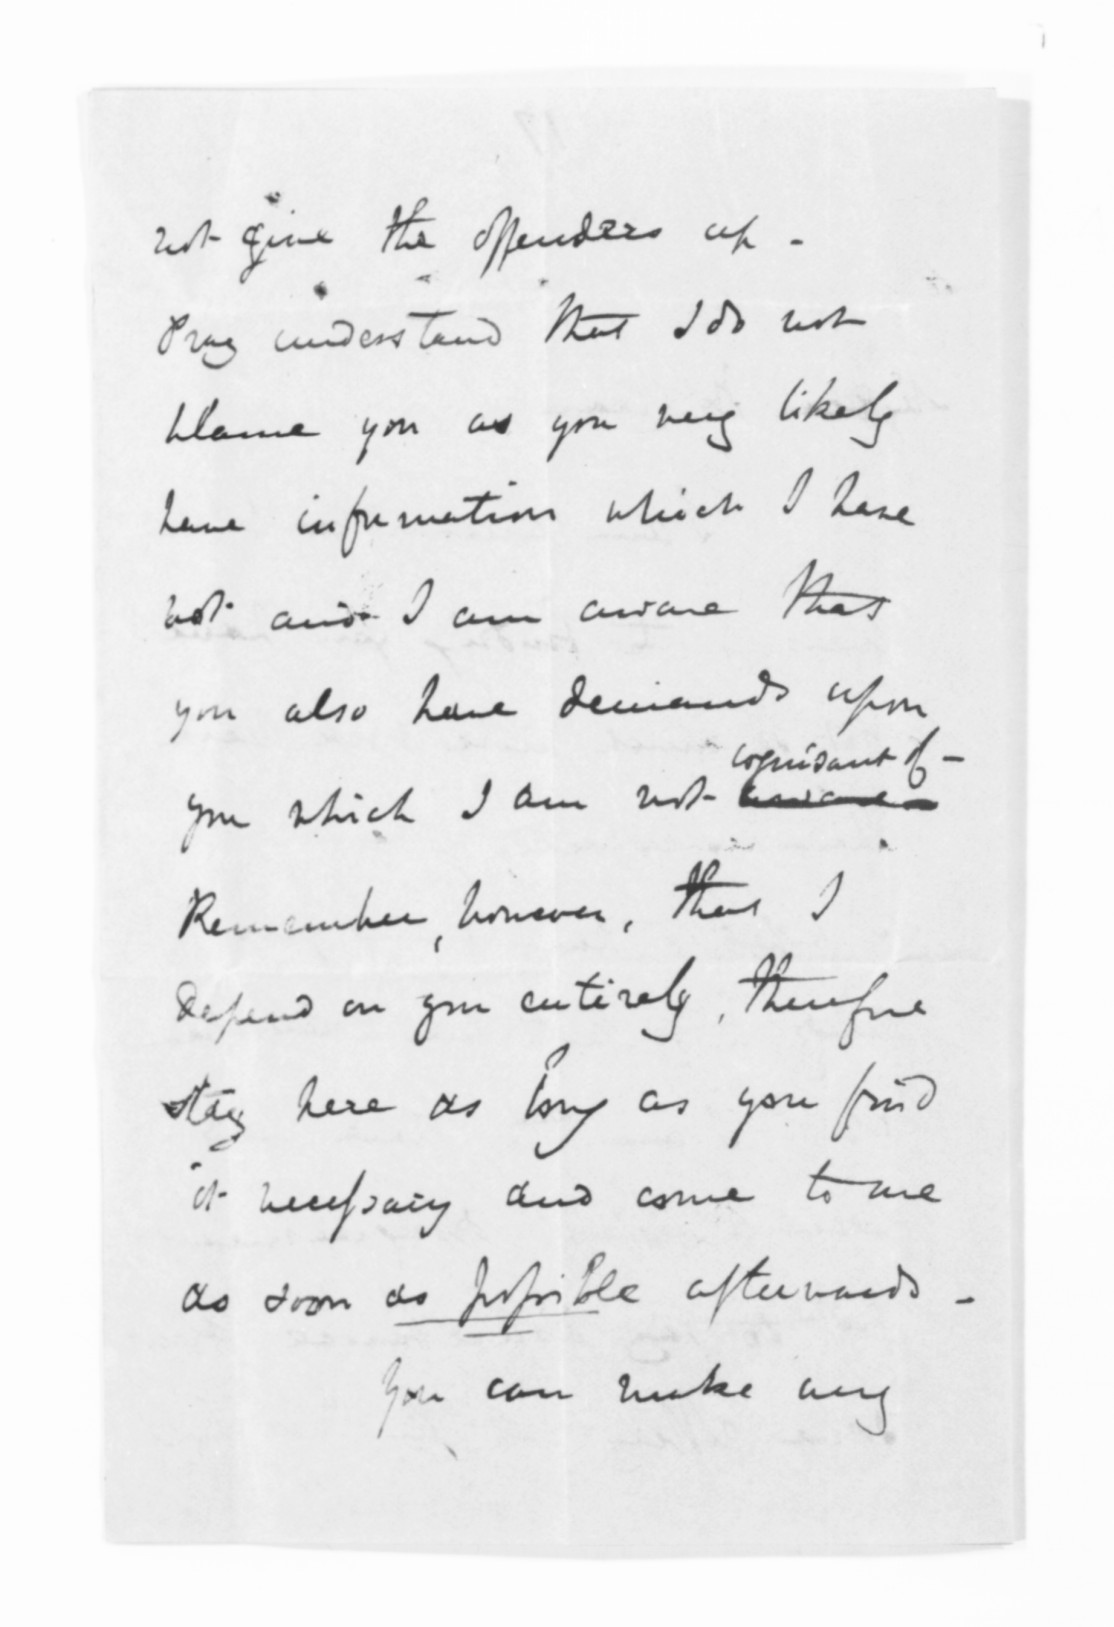 not give the offenders up -
Pray understand that I do not
blame you as you very likely
have information which I have
not and I am aware that
you also have demands upon
cognisant of -
you which I am not aware
Remember, however, that I
depend on you entirely, therefore
stay here as long as you find
it necessary and come to me
as soon as possible afterwards -
You can make any